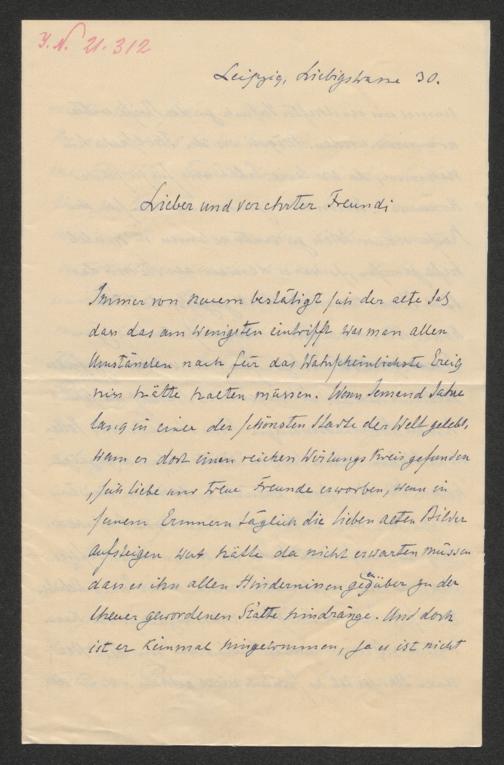 J. N. 21.312
Leipzig, Liebigstrasse 30.
Lieber und verehrter Freund!
Immer von neuem bestätigt sich der alte Satz
dass das am wenigsten eintrifft was man allen
Umständen nach für das Wahrscheinlichste Ereig
niss hätte halten müssen. Wenn Jemand Jahre
lang in einer der schönsten Städte der Welt gelebt,
wenn er dort einen reichen Wirkungs Kreis gefunden
, sich liebe und treue Freunde erworben, wenn in
seinem Erinnern täglich die lieben alten Bilder
aufsteigen, wer hätte da nicht erwarten müssen
dass es ihn allen Hindernissen gegenüber zu der
theuer gewordenen Stätte hindränge. Und doch
ist er keinmal hingekommen, ja es ist nicht